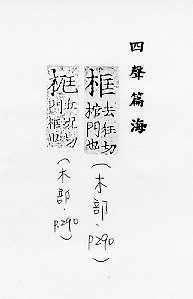 四聲篇海
框 去狂切
門也
(木部.P.290)
狂切
門框也
(木部.P.290)